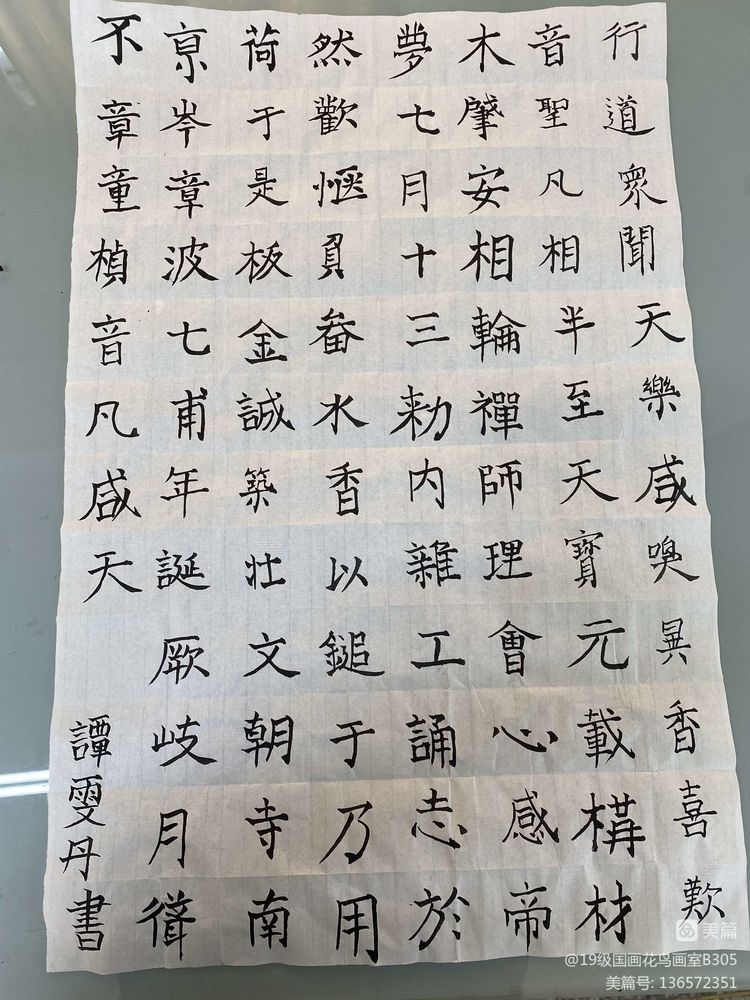 行道衆聞天樂咸嗅異香喜歎
音聖凡相半至天寶元載構材
木肇安相輪禪師理會心感帝
夢七月十三勑内雜工誦志於
然歡愜負畚水香以鎚于乃用
荷于是板金誠築壯文朝寺南
京岑章波七甫年誕厥岐月聳
不章童楨音凡咸天
譚雯丹書
美篇
@19级国画花鸟画室B305
美篇号: 136572351